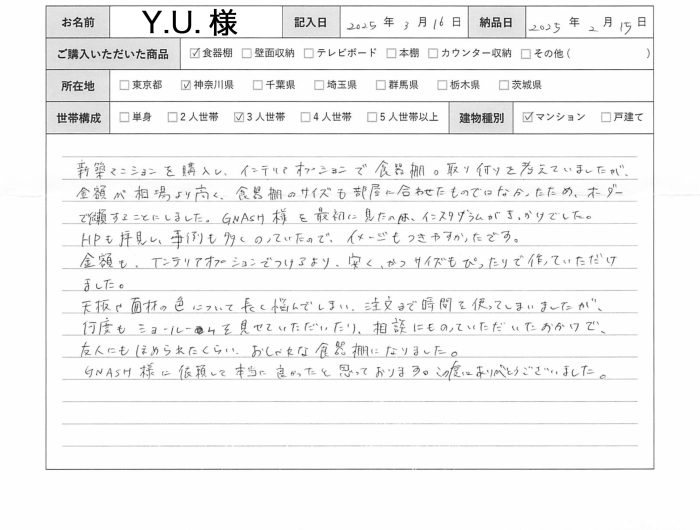 お名前 Y.U. 様 記入日 2025 年 3 月 16 日 納品日 2025 年 2 月 15 日
ご購入いただいた商品 ☑食器棚 □壁面収納 □テレビボード □本棚 □カウンター収納 □その他 ( )
所在地 □東京都 ☑神奈川県 □千葉県 □埼玉県 □群馬県 □栃木県 □茨城県
世帯構成 □単身 □2人世帯 ☑3人世帯 □4人世帯 □5人世帯以上 建物種別 ☑マンション □戸建て
新築マンションを購入し、インテリアオプションで食器棚の取り付けを考えていましたが、
金額が相場より高く、食器棚のサイズも部屋に合わせたものではなかったため、オーダー
で依頼することにしました。GNASH様を最初に見たのは、インスタグラムがきっかけでした。
HPも拝見し、事例も多くのっていたので、イメージもつきやすかったです。
金額も、インテリアオプションでつけるより、安く、かつサイズもぴったりで作っていただけ
ました。
天板や面材の色について長く悩んでしまい、注文まで時間を使ってしまいましたが、
何度もショールームを見せていただいたり、相談にものっていただいたおかげで、
友人にもほめられたくらい、おしゃれな食器棚になりました。
GNASH様に依頼して本当に良かったと思っております。この度はありがとうございました。